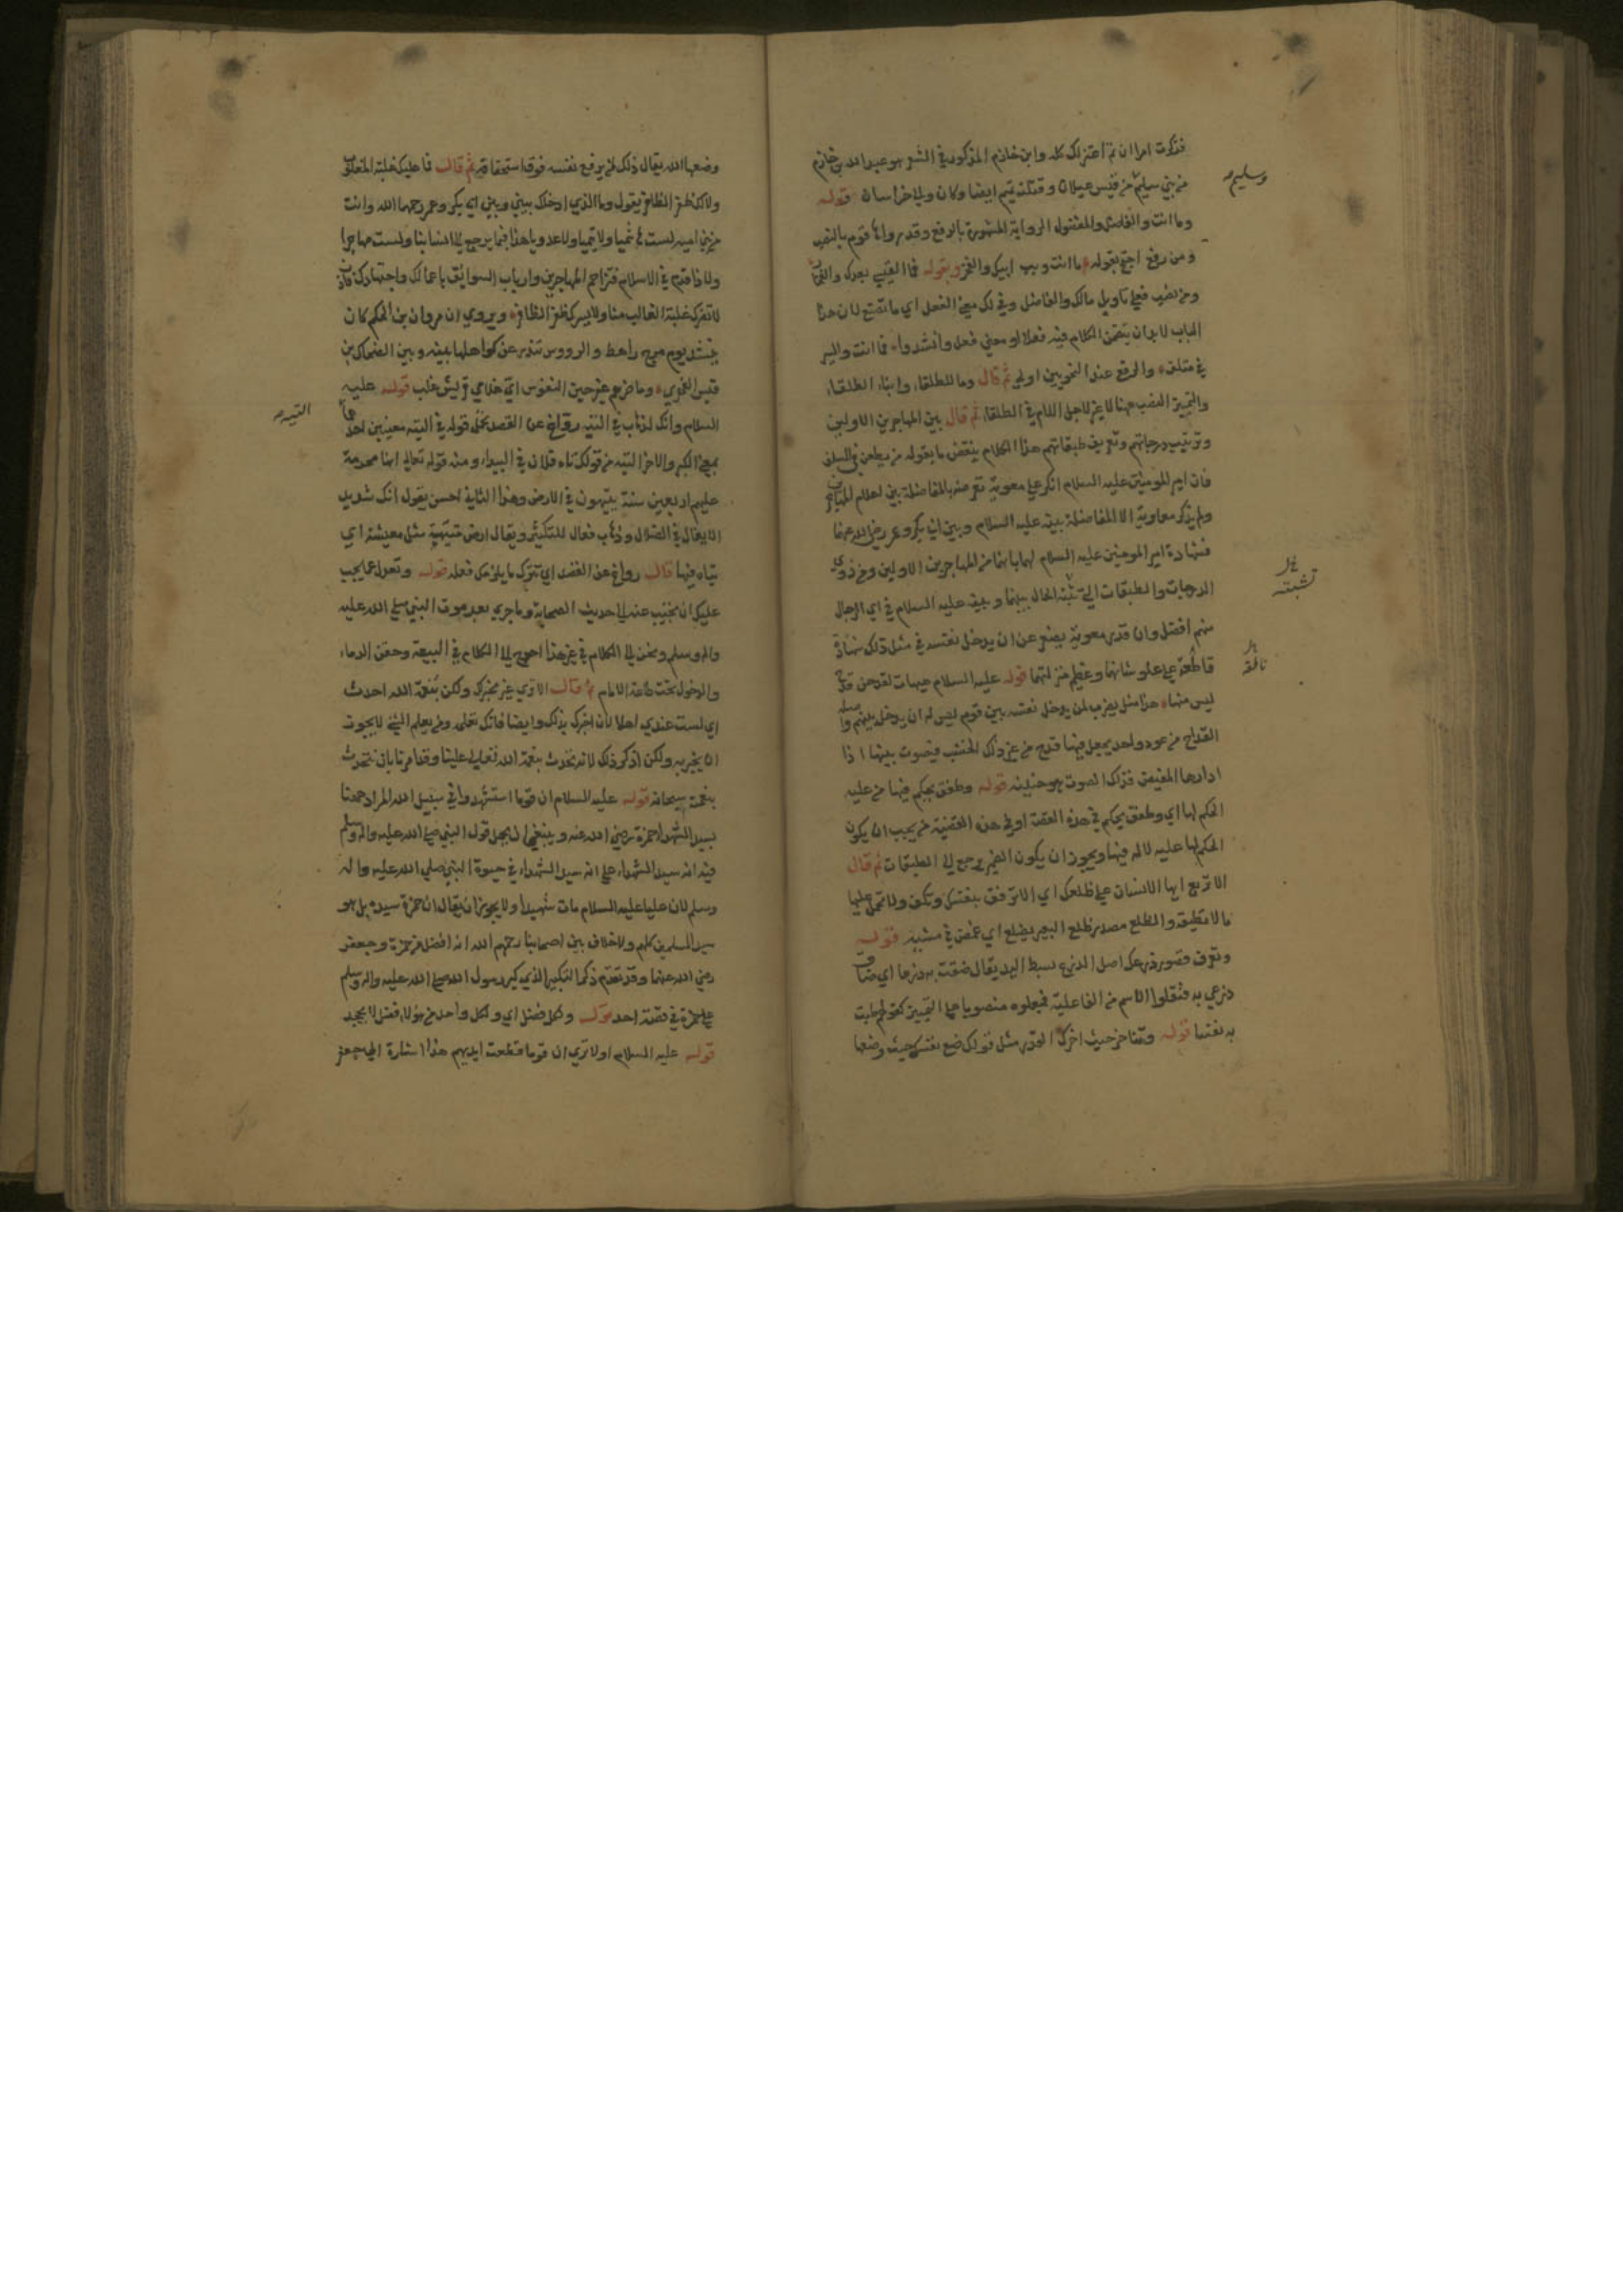 فذكرت امرا ان تم اعتزلك كله وابن خازم المذكور في الشعر هو عبد الله بن خازم
من بني سليم من قيس عيلان وقتلته تميم ايضا وكان والي خراسان قوله
وسليم
وما انت والفاضل والمفضول الرواية المشهورة بالرفع وقد رواها قوم بالنصب
ومن رفع احتج بقوله ما انت ويب ابيك والفخر وبقوله فما القيسي بعدك والفخار
ومن نصب فعلى تاويل مالك والفاضل وفي ذلك معنى الفعل اي ما تصنع لان هذا
الباب لا بد ان يتضمن الكلام فيه فعلا او معنى فعل وانشدوا فما انت والسير
في متلف والرفع عند النحويين اولى ثم قال وما للطلقاء وابناء الطلقاء
والتمييز النصب ههنا لا غير لاجل اللام في الطلقاء ثم قال بين المهاجرين الاولين
وترتيب درجاتهم وتعريف طبقاتهم هذا الكلام ينقض ما يقوله من يطعن في السلف
فان امير المومنين عليه السلام انكر على معوية تعرضه بالمفاضلة بين اعلام المهاجرين
ولم يذكر معاوية الا المفاضلة بينه عليه السلام وبين ابي بكر وعمر رضي الله عنهما
فشهادة امير المومنين عليه السلام لهما بانهما من المهاجرين الاولين ومن ذوي
الدرجات والطبقات التي تثبته الحال بينهما وبينه عليه السلام في اي الرجال
تشبته
منهم افضل وان قدر معوية يصغر عن ان يدخل نفسه في مثل ذلك شهادة
قاطعة على علو شانهما وعظيم منزلتهما قوله عليه السلام هيهات لقد حن قدح
ليس منها هذا مثل يضرب لمن يدخل نفسه بين قوم ليس له ان يدخل بينهم واصله
القداح من عود واحد يجعل فيها قدح من غير ذلك الخشب فيصوت بينها اذا
ادارها المفيض فذلك الصوت هو حنينه قوله وطفق يحكم فيها من عليه
الحكم لها اي وطفق يحكم في هذه القصة او في هذه القضية من يجب ان يكون
الحكم لها عليه لا له فيها ويجوز ان يكون الضمير يرجع الى الطبقات ثم قال
الا تربع ايها الانسان على ظلعك اي الا ترفق بنفسك وتكف ولا تحمل عليها
ما لا تطيقه والظلع مصدر ظلع البعير يظلع اي غمض في مشيه قوله
وتعرف قصور ذرعك اصل الذرع بسط اليد يقال ضقت به ذرعا اي ضاق
ذرعي به فنقلوا الاسم من الفاعلية فجعلوه منصوبا على التمييز كقولهم طبت
به نفسا قوله وتتاخر حيث اخرك القدر مثل قولك ضع نفسك حيث وضعها
وضعها الله يقال ذلك لمن يرفع نفسه فوق استحقاقه ثم قال فما عليك غلبة المغلوب
ولا لك ظفر الظافر يقول وما الذي ادخلك بيني وبين ابي بكر وعمر رحمهما الله وانت
من بني امية لست هاشميا ولا تيميا ولا عدويا هذا فيما يرجع الى انسابنا ولست مهاجرا
ولا ذا قدم في الاسلام فتزاحم المهاجرين وارباب السوابق باعمالك واجتهادك فاذن
لا تضرك غلبة الغالب منا ولا يسرك ظفر الظافر ويروى ان مروان بن الحكم كان
ينشد يوم مرج راهط والرووس تندر عن كواهلها بينه وبين الضحاك بن
قيس الفهري وما ضرهم غير حين النفوس اي غلامي قريش غلب قوله عليه
السلام وانك لذهاب في التيه رواغ عن القصد يحتمل قوله في التيه معنيين احدهما
التيه
بمعنى الكبر والاخر التيه من قولك تاه فلان في البيداء ومنه قوله تعالى انها محرمة
عليهم اربعين سنة يتيهون في الارض وهذا الثاني احسن يقول انك شديد
الايغال في الضلال وذهاب فعال للتكثير ويقال ارض متيهة مثل معيشة اي
يتاه فيها قال رواغ عن القصد اي تترك ما يلزمك فعله قوله وتعدل عما يجب
عليك ان تجيب عنه الى حديث الصحابة وما جرى بعد موت النبي صلى الله عليه
واله وسلم ونحن الى الكلام في غير هذا احوج الى الكلام في البيعة وحقن الدماء
والدخول تحت طاعة الامام ثم قال الا ترى غير مخبرك ولكن بنعمة الله احدث
اي لست عندي اهلا لان اخبرك بذلك وايضا فانك تعلمه ومن يعلم الشي لا يجوز
ان يخبر به ولكن اذكر ذلك لانه تحدث بنعمة الله تعالى علينا وقد امرنا بان نتحدث
بنعمته سبحانه قوله عليه السلام ان قوما استشهدوا في سبيل الله المراد ههنا
بسيد الشهداء حمزة رضي الله عنه وينبغي ان يحمل قول النبي صلى الله عليه واله وسلم
فيه انه سيد الشهداء على انه سيد الشهداء في حيوة النبي صلى الله عليه واله
وسلم لان عليا عليه السلام مات شهيدا ولا يجوز ان يقال ان حمزة سيده بل هو
سيد المسلمين كلهم ولا خلاف بين اصحابنا رحمهم الله انه افضل من حمزة وجعفر
رضي الله عنهما وقد تقدم ذكر التكبير الذي كبر رسول الله صلى الله عليه واله وسلم
على حمزة في قصة احد قوله ولكل فضل اي ولكل واحد من هولاء فضل لا يجحد
قوله عليه السلام اولا ترى ان قوما قطعت ايديهم هذا اشارة الى جعفر